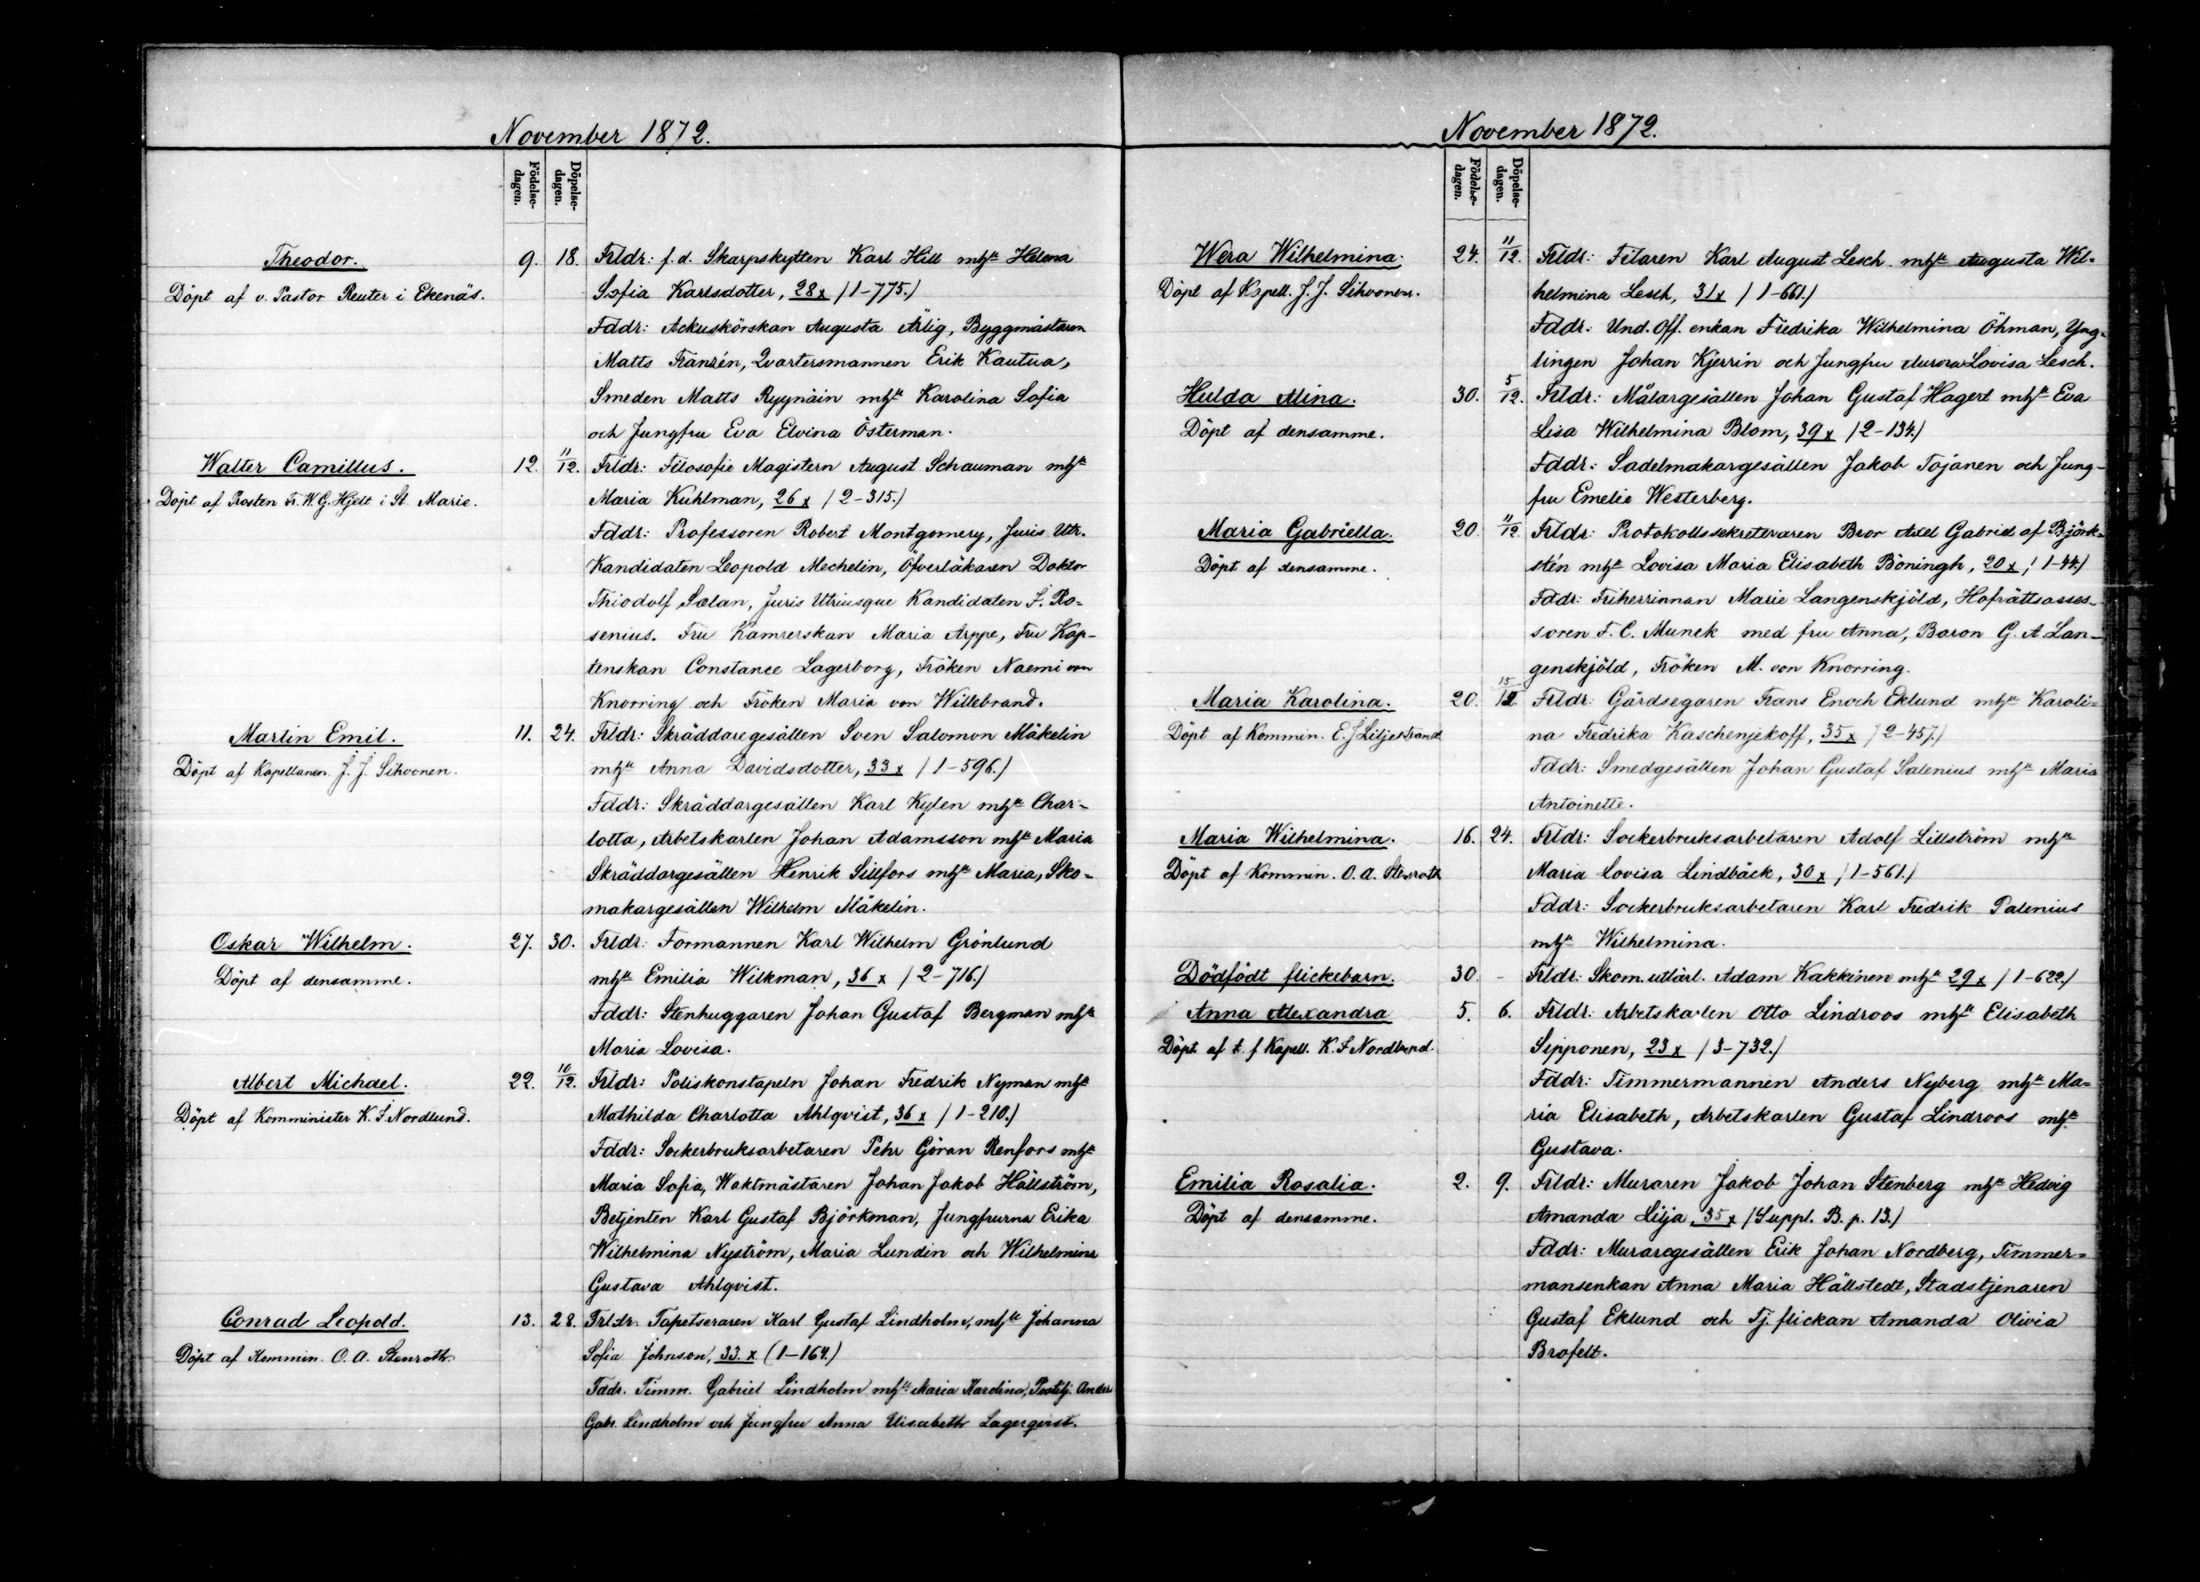 November 1872.
Födelse-dagen.
Döpelse-dagen.
Theodor. 9. 18. Frldr: f. d. Skarpskytten Karl Hill mhu Helena
Döpt af v. Pastor Reuter i Ekenäs. Sofia Karlsdotter, 28 x /1-775./
Fddr: Ackuskörskan Augusta Ärlig, Byggmästaren
Matts Franzén, Qvartersmannen Erik Kautua,
Smeden Matts Ryynäin mhu Karolina Sofia
och Jungfru Eva Elvina Österman.
Walter Camillus. 12. 11/12. Frldr: Filosofie Magistern August Schauman mhu
Döpt af Prosten Fr. W. G. Hjelt i St. Marie. Maria Kuhlman, 26 x /2-315./
Fddr: Professoren Robert Montgomery, Juris Utr.
Kandidaten Leopold Mechelin, Öfverläkaren Doktor
Thiodolf Sælan, Juris Utriusque Kandidaten J. Ro-
senius. Fru Kamrerskan Maria Arppe, Fru Kap-
tenskan Constance Lagerborg, Fröken Naemi von
Knorring och Fröken Maria von Willebrand.
Martin Emil. 11. 24. Frldr: Skräddaregesällen Sven Salomon Mäkelin
Döpt af Kapellanen J. J. Sihvonen. mhu Anna Davidsdotter, 33 x /1-596./
Fddr: Skräddargesällen Karl Kylen mhu Char-
lotta, Arbetskarlen Johan Adamsson mhu Maria
Skräddargesällen Henrik Sillfors mhu Maria, Sko-
makargesällen Wilhelm Mäkelin.
Oskar Wilhelm. 27. 30. Frldr: Formannen Karl Wilhelm Grönlund
Döpt af densamme. mhu Emilia Wilkman, 36 x /2-716./
Fddr: Stenhuggaren Johan Gustaf Bergman mhu
Maria Lovisa.
Albert Michael. 22. 10/12. Frldr: Poliskonstapeln Johan Fredrik Nyman mhu
Döpt af Komminister K. F Nordlund. Mathilda Charlotta Ahlqvist, 36 x /1-210./
Fddr: Sockerbruksarbetaren Pehr Göran Renfors mhu
Maria Sofia, Waktmästaren Johan Jakob Hällström,
Betjenten Karl Gustaf Björkman, Jungfrurna Erika
Wilhelmina Nyström, Maria Lundin och Wilhelmina
Gustava Ahlqvist.
Conrad Leopold. 13. 28. Frldr. Tapetseraren Karl Gustaf Lindholm, mhu Johanna
Döpt af Kommin. O. A. Stenroth. Sofia Johnson, 33. x (1-164.)
Fddr. Timm. Gabriel Lindholm mhu Maria Karolina, Postilj. Anders
Gabr. Lindholm och Jungfru Anna Elisabeth Lagerqvist.
November 1872.
Födelse-dagen.
Döpelse-dagen.
Wera Wilhelmina. 24. 11/12. Frldr: Filaren Karl August Lesch mhu Augusta Wil-
Döpt af Kapell. J. J. Sihvonen. helmina Lesch, 31 x /1-661./
Fddr: Und. Off. enkan Fredrika Wilhelmina Öhman, Yng-
lingen Johan Kjerrin och Jungfru Aurora Lovisa Lesch.
Hulda Alina. 30. 5/12. Frldr: Målargesällen Johan Gustaf Hagert mhu Eva
Döpt af densamme. Lisa Wilhelmina Blom, 39 x /2-134./
Fddr: Sadelmakargesällen Jakob Tojanen och Jung-
fru Emelie Westerberg.
Maria Gabriella. 20 11/12 Frldr: Protokollssekreteraren Bror Axel Gabriel af Björk-
Döpt af densamme. stén mhu Lovisa Maria Elisabeth Böningh, 20 x /1-44./
Fddr: Friherrinnan Marie Langenskjöld, Hofrättsasses-
soren F. C. Munck med fru Anna, Baron G. A Lan-
genskjöld, Fröken M. von Knorring.
Maria Karolina. 20. 15/12 Frldr: Gårdsegaren Frans Enoch Eklund mhu Karoli-
Döpt af Kommin. E. J Liljestrand na Fredrika Kaschenjekoff, 35 x /2-457./
Fddr: Smedgesällen Johan Gustaf Salenius mhu Maria
Antoinette.
Maria Wilhelmina. 16. 24. Frldr: Sockerbruksarbetaren Adolf Lillström mhu
Döpt af Kommin. O. A. Stenroth Maria Lovisa Lindbäck, 30 x /1-561./
Fddr: Sockerbruksarbetaren Karl Fredrik Palenius
mhu Wilhelmina.
Dödfödt flickebarn. 30. - Frldr: Skom. utlärl. Adam Kakkinen mhu 29 x /1-622./
Anna Alexandra 5. 6. Frldr: Arbetskarlen Otto Lindroos mhu Elisabeth
Döpt af t. f Kapell. K. F Nordlund. Sipponen, 23 x /3-732./
Fddr: Timmermannen Anders Nyberg mhu Ma-
ria Elisabeth, Arbetskarlen Gustaf Lindroos mhu
Gustava.
Emilia Rosalia. 2. 9. Frldr: Muraren Jakob Johan Stenberg mhu Hedvig
Döpt af densamme. Amanda Lilja, 35 x /Suppl. B. p. 13./
Fddr: Muraregesällen Erik Johan Nordberg, Timmer-
mansenkan Anna Maria Hällstedt, Stadstjenaren
Gustaf Eklund och Tj. flickan Amanda Olivia
Brofelt.